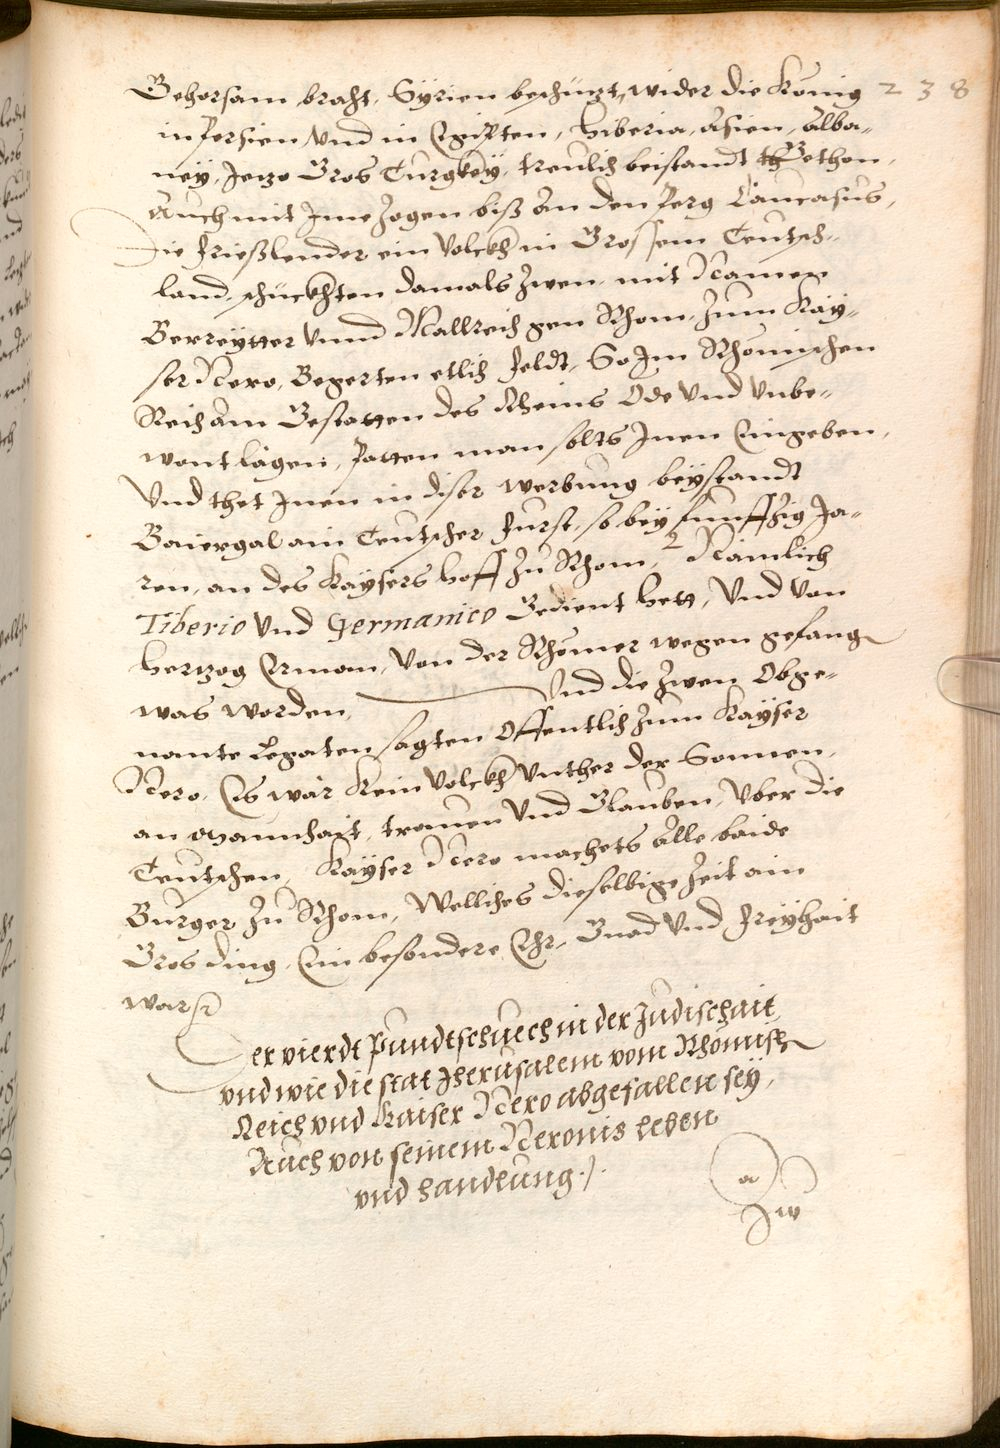 Gehorsam bracht, Syrien beschützt, wider die König 238
in Persien, Vnd in Egipten, Hiberia, Asien, Alba-
ney, Jezo Gros Turgkey, treulich beistandt Gethon,
Auch mit Jme zogen biß An den Perg Caucasus,
Die Frießlender ein Volckh in Grossem Teutsch-
land, schückhten damals Zwen, mit Namen
Verreytter Vnnd Mallreich gen Rhom, Zum Kay-
ser Nero, Begerten etlich Feldt, So Jm Rhömischen
Reich Am Gestatten des Rheins Öde Vnd Vnbe-
wont lägen, Patten man solts Jnen Eingeben,
Vnd thet Jnen in diser Werbung beystandt
Baiergal ain Teutscher Fürst, so bey funffzig Ja-
ren, an des Kaysers hoff zu Rhom, Nämlich
Tiberio Vnd Germanico Gedient hett, Vnd von
Hertzog Erman, Von der Rhömer wegen gefang
was worden, Vnd die Zwen Obge-
nante Legaten sagten Offentlich Zum Kayser
Nero, Es wär Kein Volckh Vnther der Sonnen,
an Mannhait, trewen Vnd Glauben, Vber die
Teutschen, Kayser Nero machets Alle baide
Burger Zu Rhom, Welliches dieselbige Zeit ain
Gros ding, Ein besondere Ehr, Gnad Vnd Freyhait
war
Der vierdt Pundtschuech in der Judischait
vnd wie die stat Jherusalem vom Rhömisch
Reich vnd Kaiser Nero abgefallen sey,
Auch von seinem Neronis leben
vnd handlung
Zw